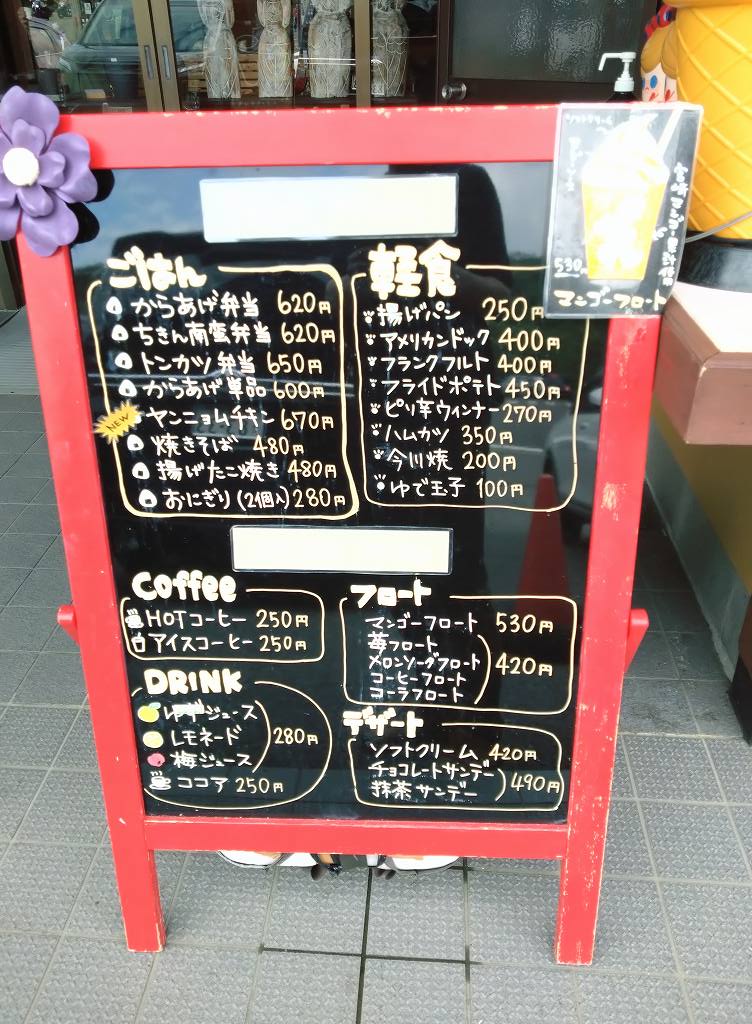 ごはん
からあげ弁当 620円
ちきん南蛮弁当 620円
トンカツ弁当 650円
からあげ単品 600円
NEW ヤンニョムチキン 670円
焼きそば 480円
揚げたこ焼き 480円
おにぎり(2個入) 280円
軽食
揚げパン 250円
アメリカンドック 400円
フランクフルト 400円
フライドポテト 450円
ピリ辛ウィンナー 270円
ハムカツ 350円
今川焼 200円
ゆで玉子 100円
ソフトクリーム
530円
マンゴーフロート
Coffee
HOTコーヒー 250円
アイスコーヒー 250円
DRINK
ゆずジュース
レモネード 280円
梅ジュース
ココア 250円
フロート
マンゴーフロート 530円
苺フロート
メロンソーダフロート 420円
コーヒーフロート
コーラフロート
デザート
ソフトクリーム 420円
チョコレートサンデー 490円
抹茶サンデー